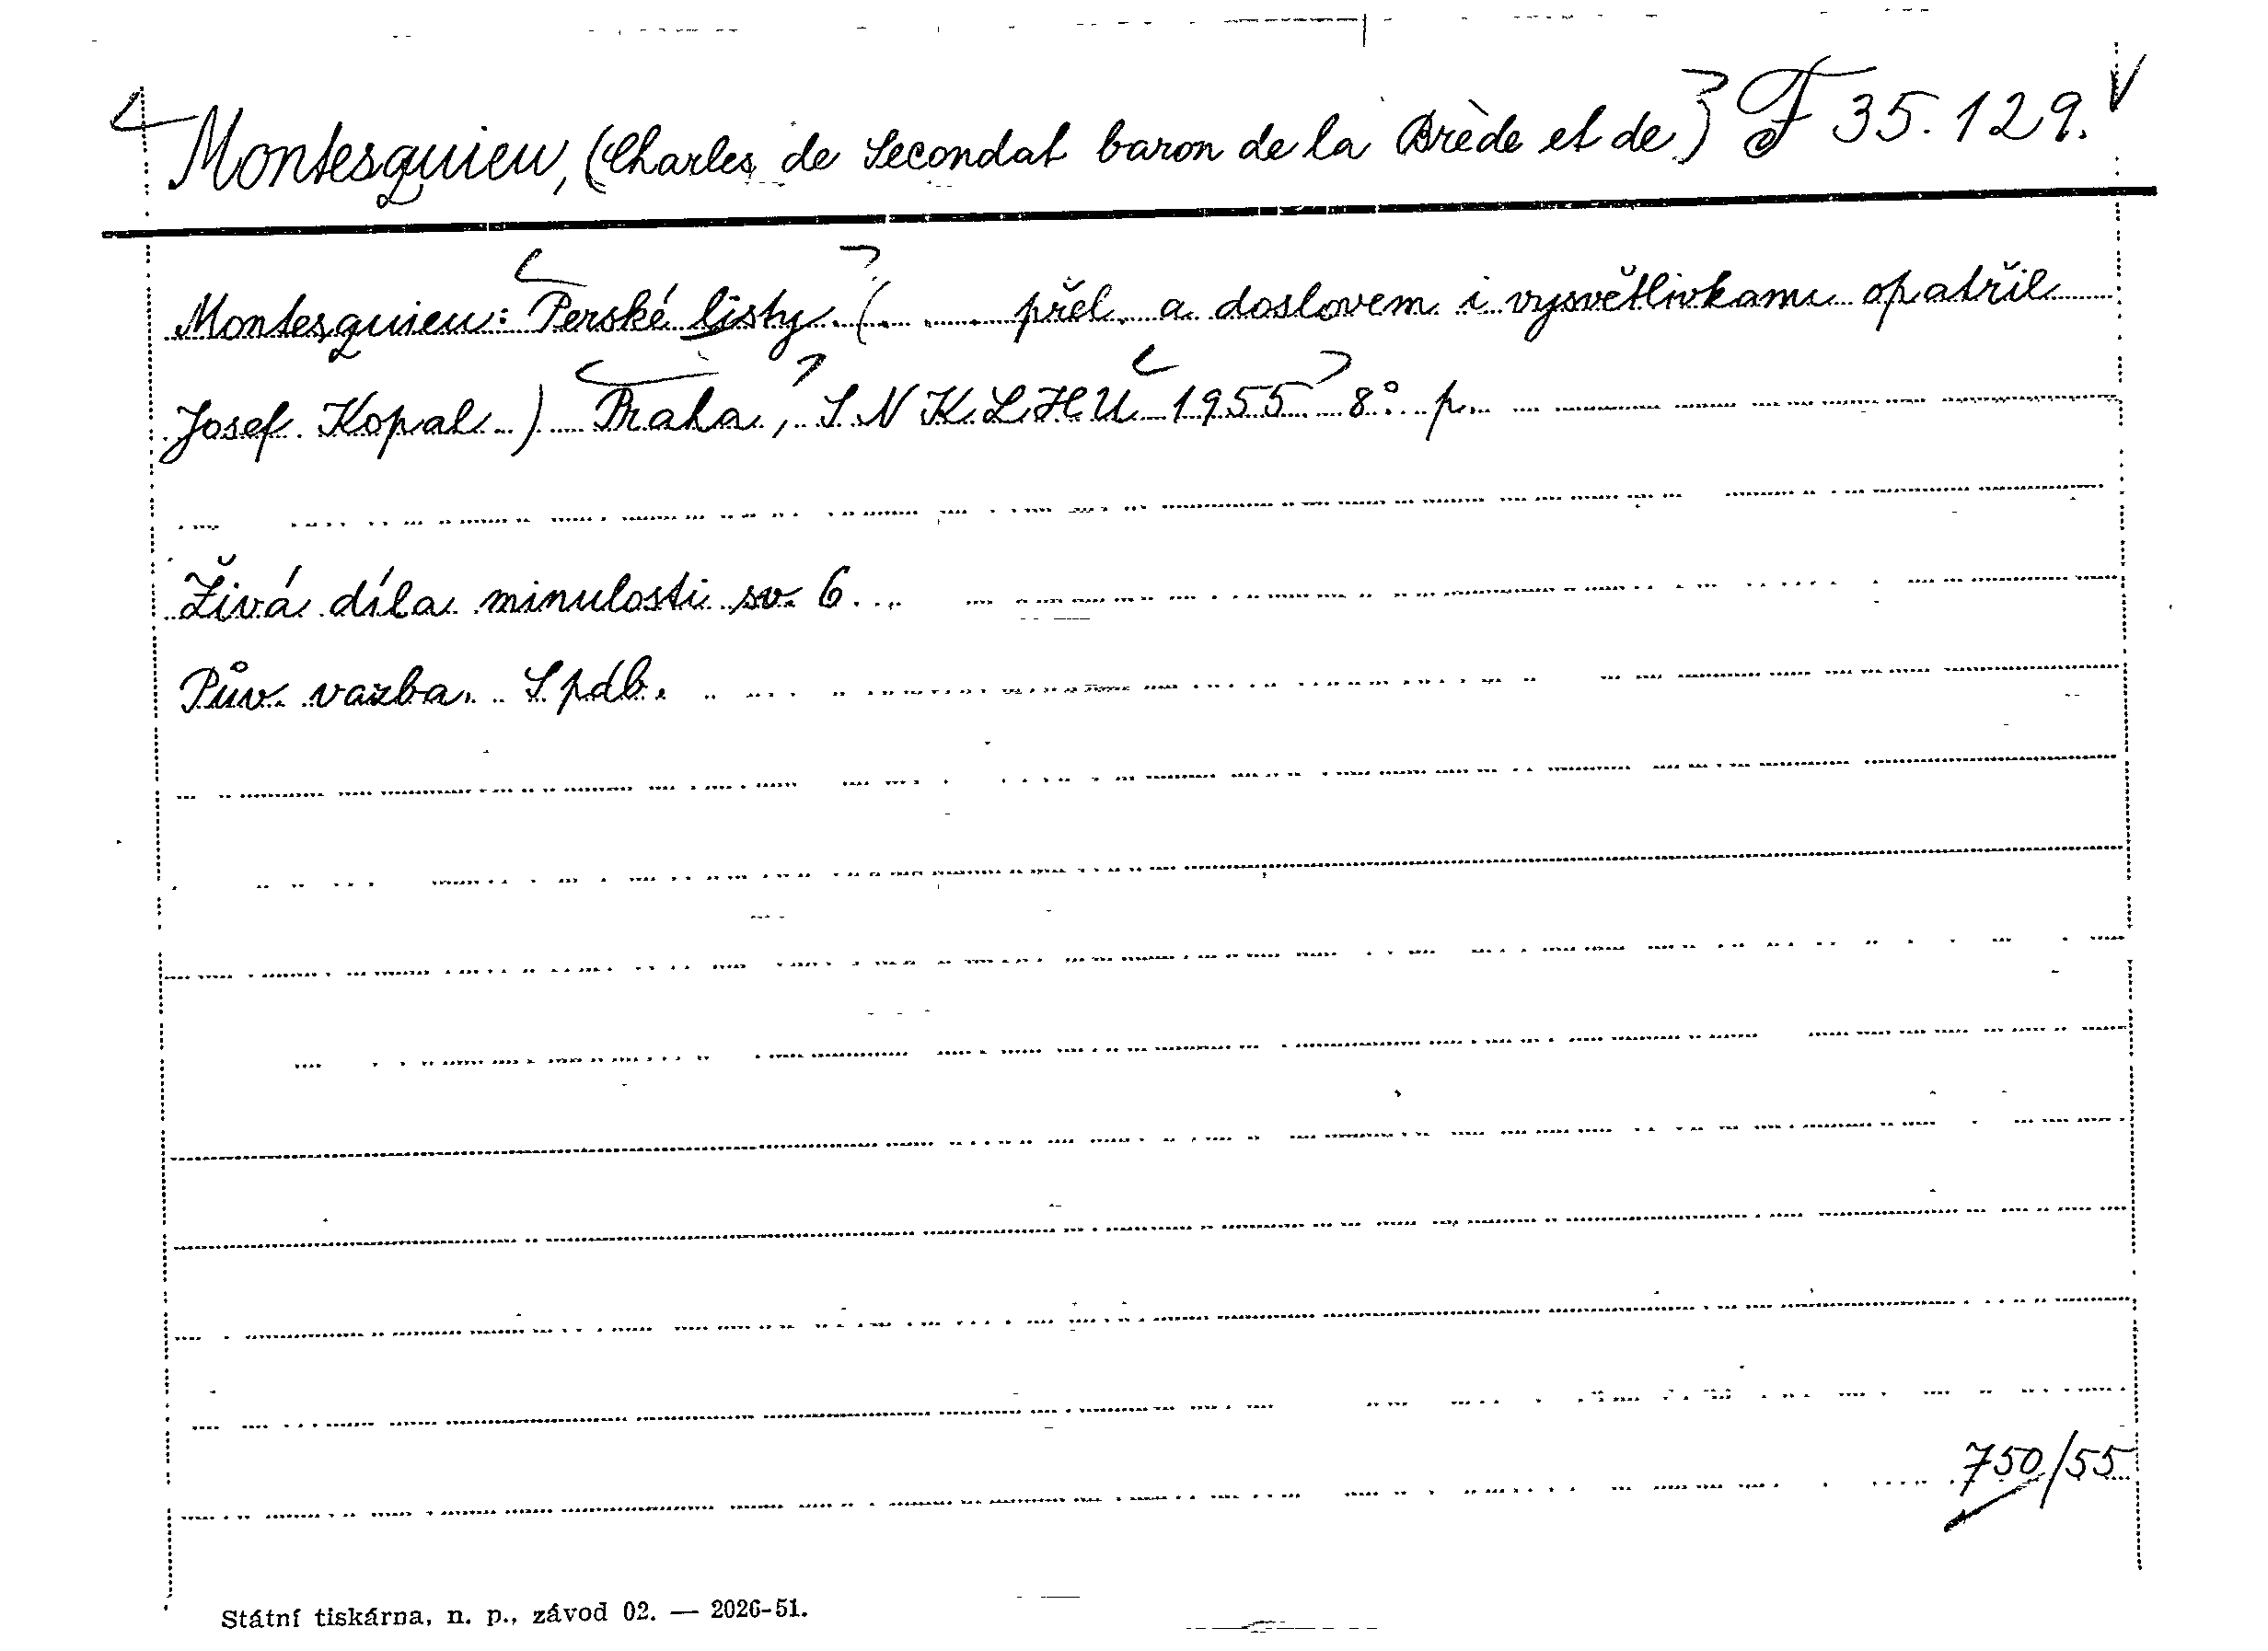 Montesquieu, (Charles de Secondat baron de la Brède et de) F 35.129.
Montesquieu: Perské listy. (. ... přel. a doslovem i vysvětlivkami opatřil
Josef Kopal.) Praha, SNKLHU 1955 8° p.
Živá díla minulosti sv. 6.
Pův. vazba. S pdb.
750/55
Státní tiskárna, n. p., závod 02. — 2026-51.